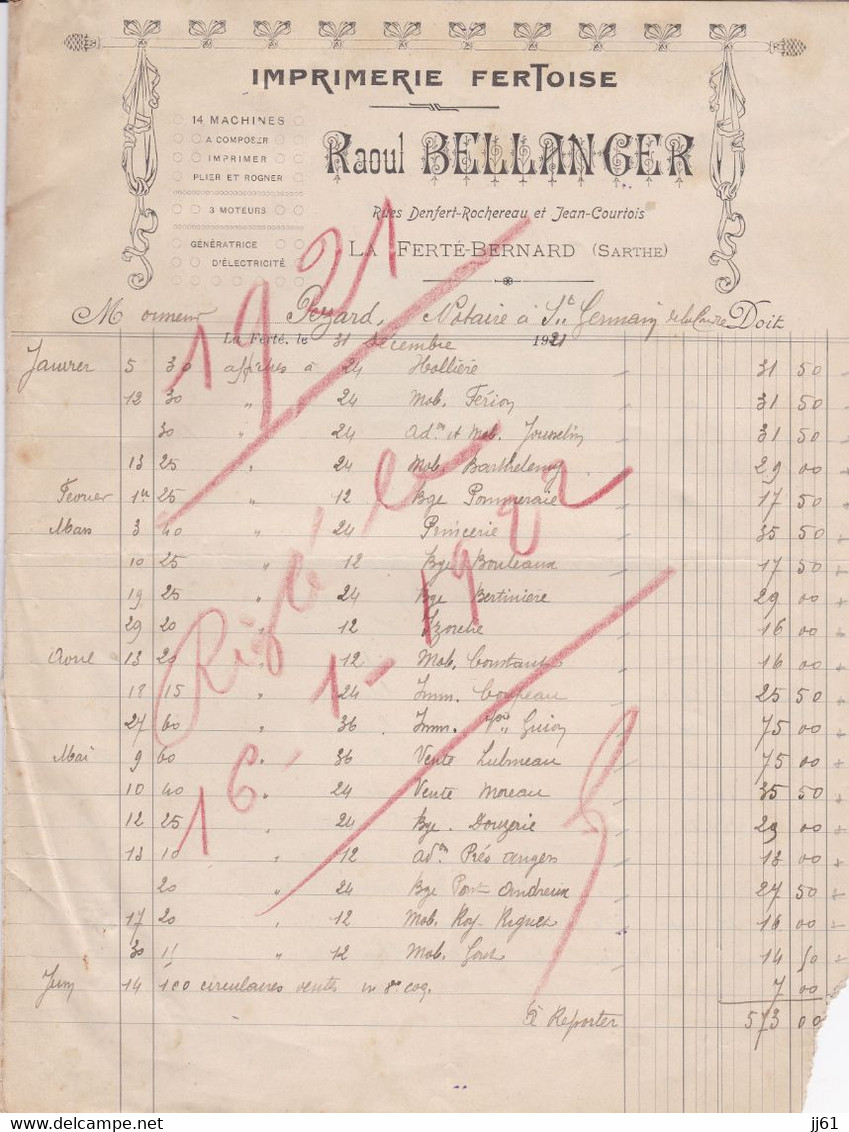 IMPRIMERIE FERTOISE
14 MACHINES
A COMPOSER
IMPRIMER
PLIER ET ROGNER
3 MOTEURS
GÉNÉRATRICE
D'ÉLECTRICITÉ
Raoul BELLANGER
Rues Denfert-Rochereau et Jean-Courtois
LA FERTÉ-BERNARD (SARTHE)
Monsieur Pezard, Notaire à St Germain de la Coudre Doit
La Ferté, le 31 décembre 1921
Janvier 5 30 affiches à 24 Hollière 31 50
12 30 " 24 Mob. Férion 31 50
30 " 24 adon et Mob. Jousselin 31 50
13 25 " 24 Mob. Barthelemy 29 00
Février 1er 25 " 12 Bge Pommeraie 17 50
Mars 3 40 24 Princerie 35 50
10 25 " 12 Bge Bouleaux 17 50
19 25 " 24 Bge Bertinière 29 00
29 20 " 12 16 00
13 20 12 Mob. Constant 16 00
18 15 " 24 Imm. Coupeau 25 50
27 60 " 36 Imm. Guion 75 00
Mai 9 60 " 36 Vente Lubineau 75 00
10 40 " 24 Vente Moreau 35 50
12 25 " 24 Bge. Douzerie 29 00
13 10 " 12 adon Prés Angers 13 00
20 " 24 Bge Pont Andreux 27 50
17 20 " 12 Mob. Roy-Riguet 16 00
30 11 " 12 Mob. 14 50
Juin 14 100 circulaires ventes in 8° coq. 7 00
à Reporter 573 00
1921
Réglé le
16-1-1922
jj61